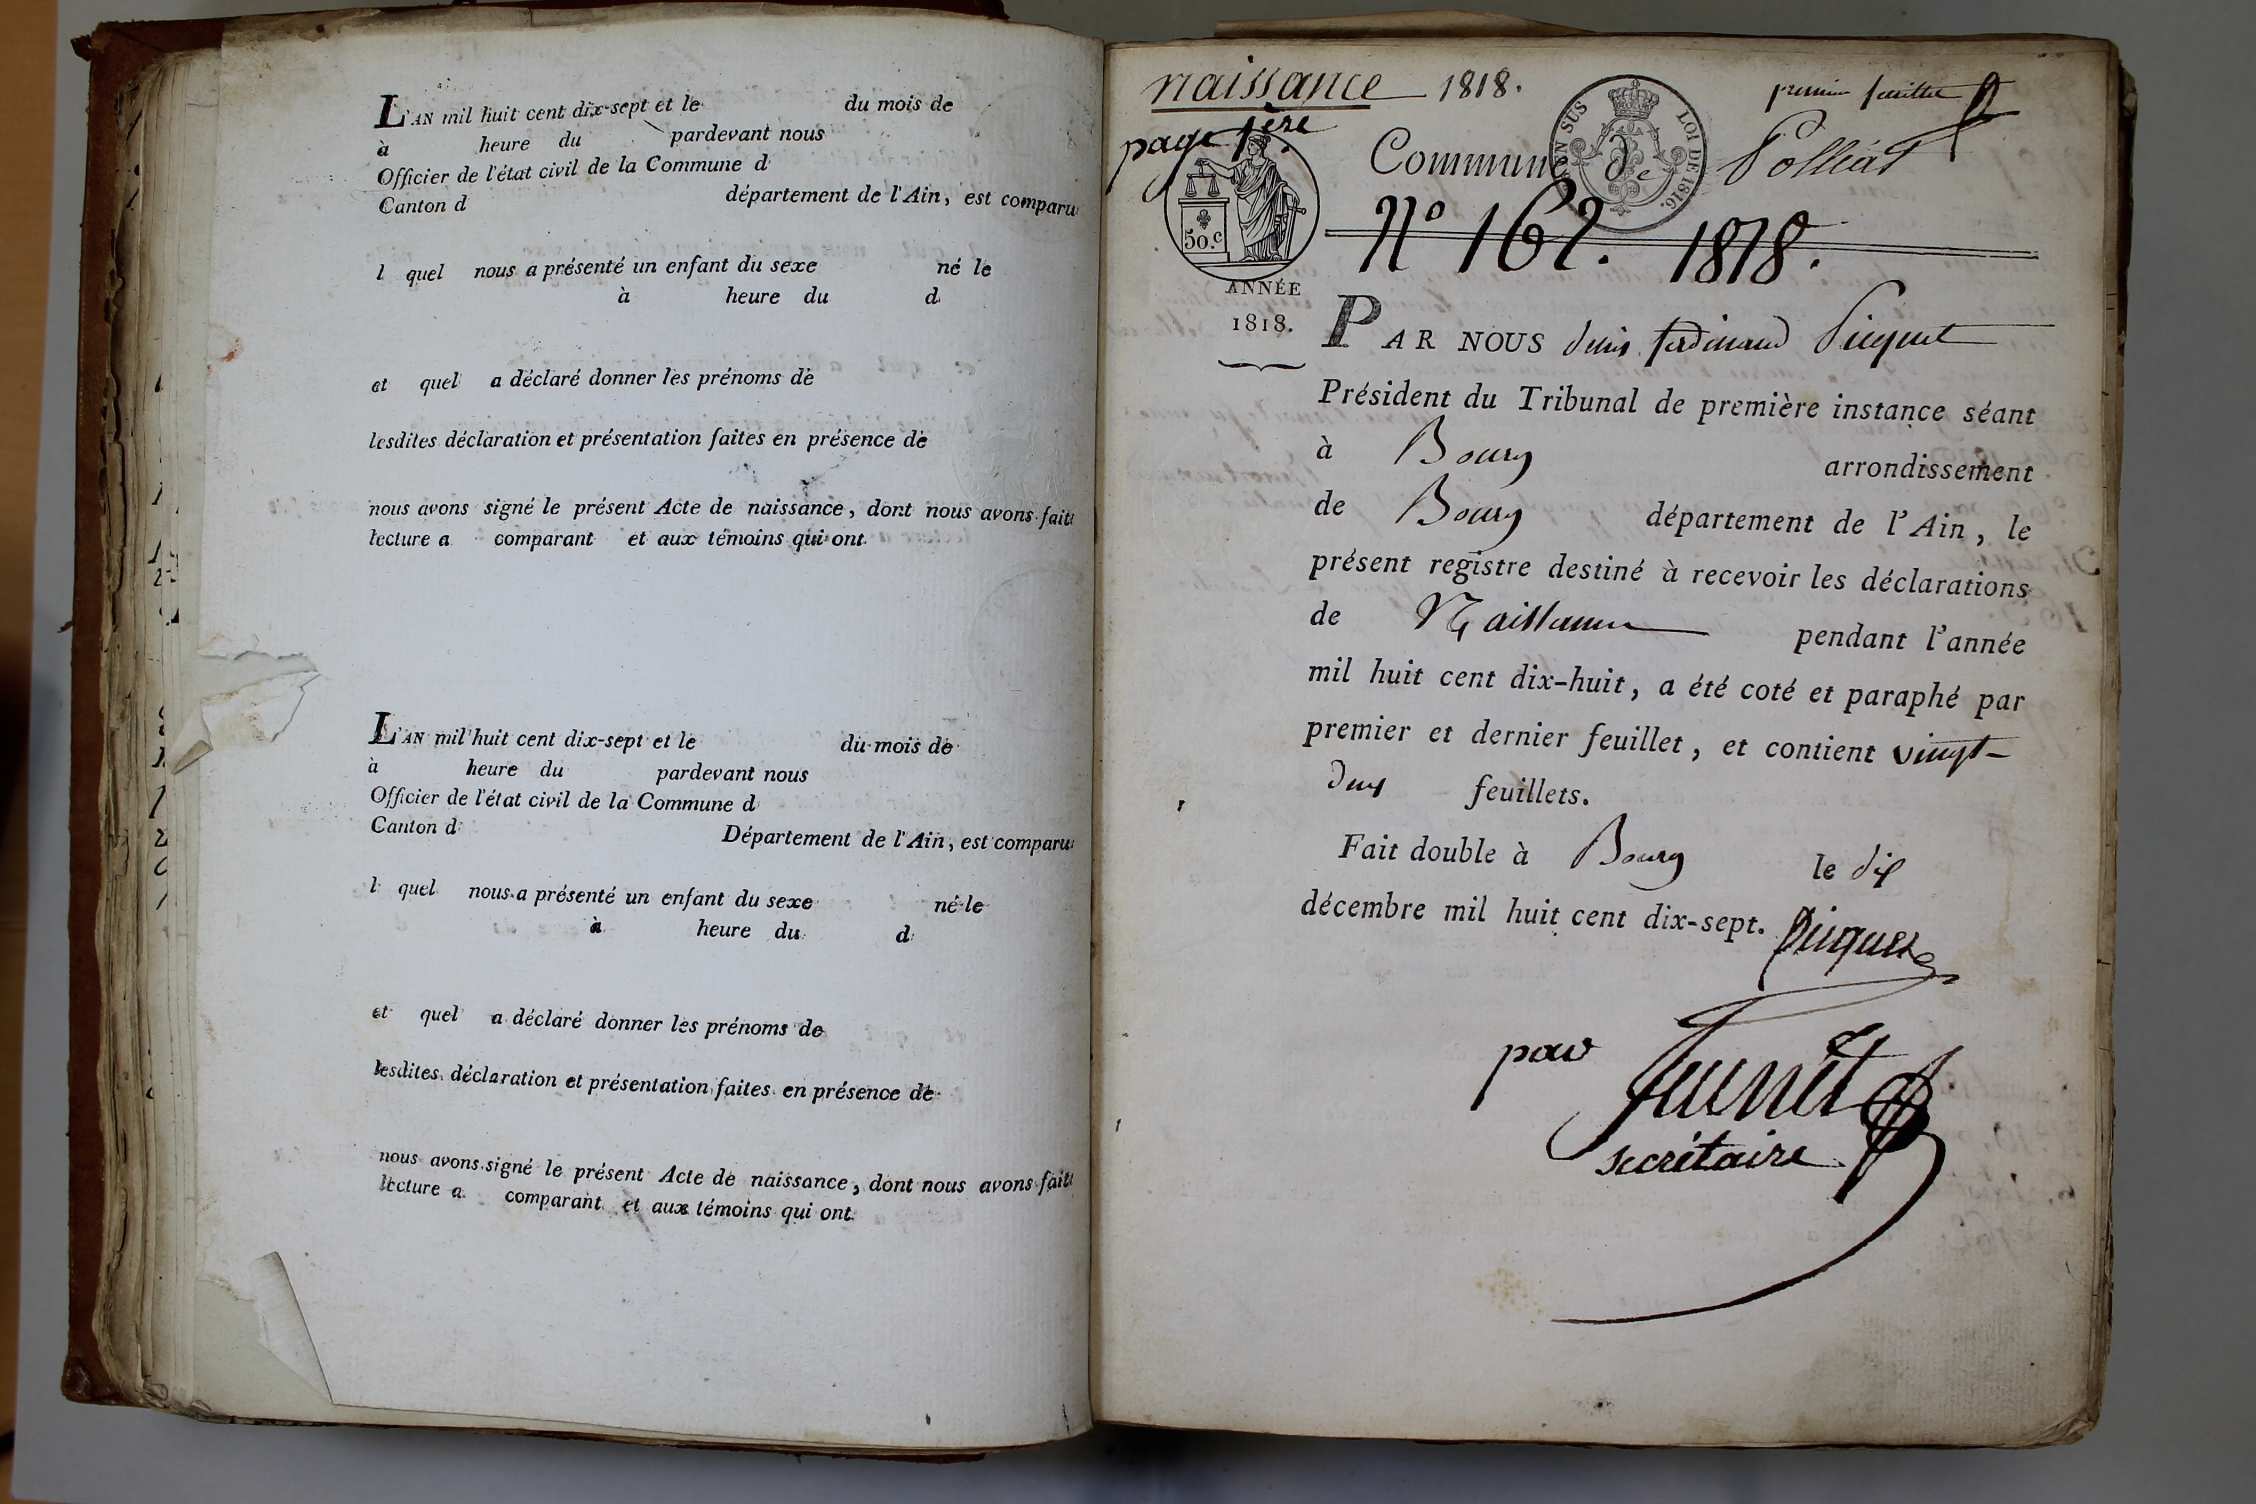 L'AN mil huit cent dix-sept et le du mois de
à heure du pardevant nous
Officier de l'état civil de la Commune d
Canton d département de l'Ain, est comparu
l quel nous a présenté un enfant du sexe né le
à heure du d
et quel a déclaré donner les prénoms de
lesdites déclaration et présentation faites en présence de
nous avons signé le présent Acte de naissance, dont nous avons fait
lecture a comparant et aux témoins qui ont
L'AN mil huit cent dix-sept et le du mois de
à heure du pardevant nous
Officier de l'état civil de la Commune d
Canton d Département de l'Ain, est comparu
l quel nous a présenté un enfant du sexe né le
à heure du d
et quel a déclaré donner les prénoms de
lesdites déclaration et présentation faites en présence de
nous avons signé le présent Acte de naissance, dont nous avons fait
lecture a comparant et aux témoins qui ont
naissance 1818. premier feuillet
page 1ère
Commune de Polliat
SUS LOI DE 1816.
50.c
N° 162. 1818.
ANNÉE
1818.
PAR NOUS denis ferdinand Picquet
Président du Tribunal de première instance séant
à Bourg arrondissement
de Bourg département de l'Ain, le
présent registre destiné à recevoir les déclarations
de Naissance pendant l'année
mil huit cent dix-huit, a été coté et paraphé par
premier et dernier feuillet, et contient vingt-
deux feuillets.
Fait double à Bourg le dix
décembre mil huit cent dix-sept. Picquet
par
secrétaire